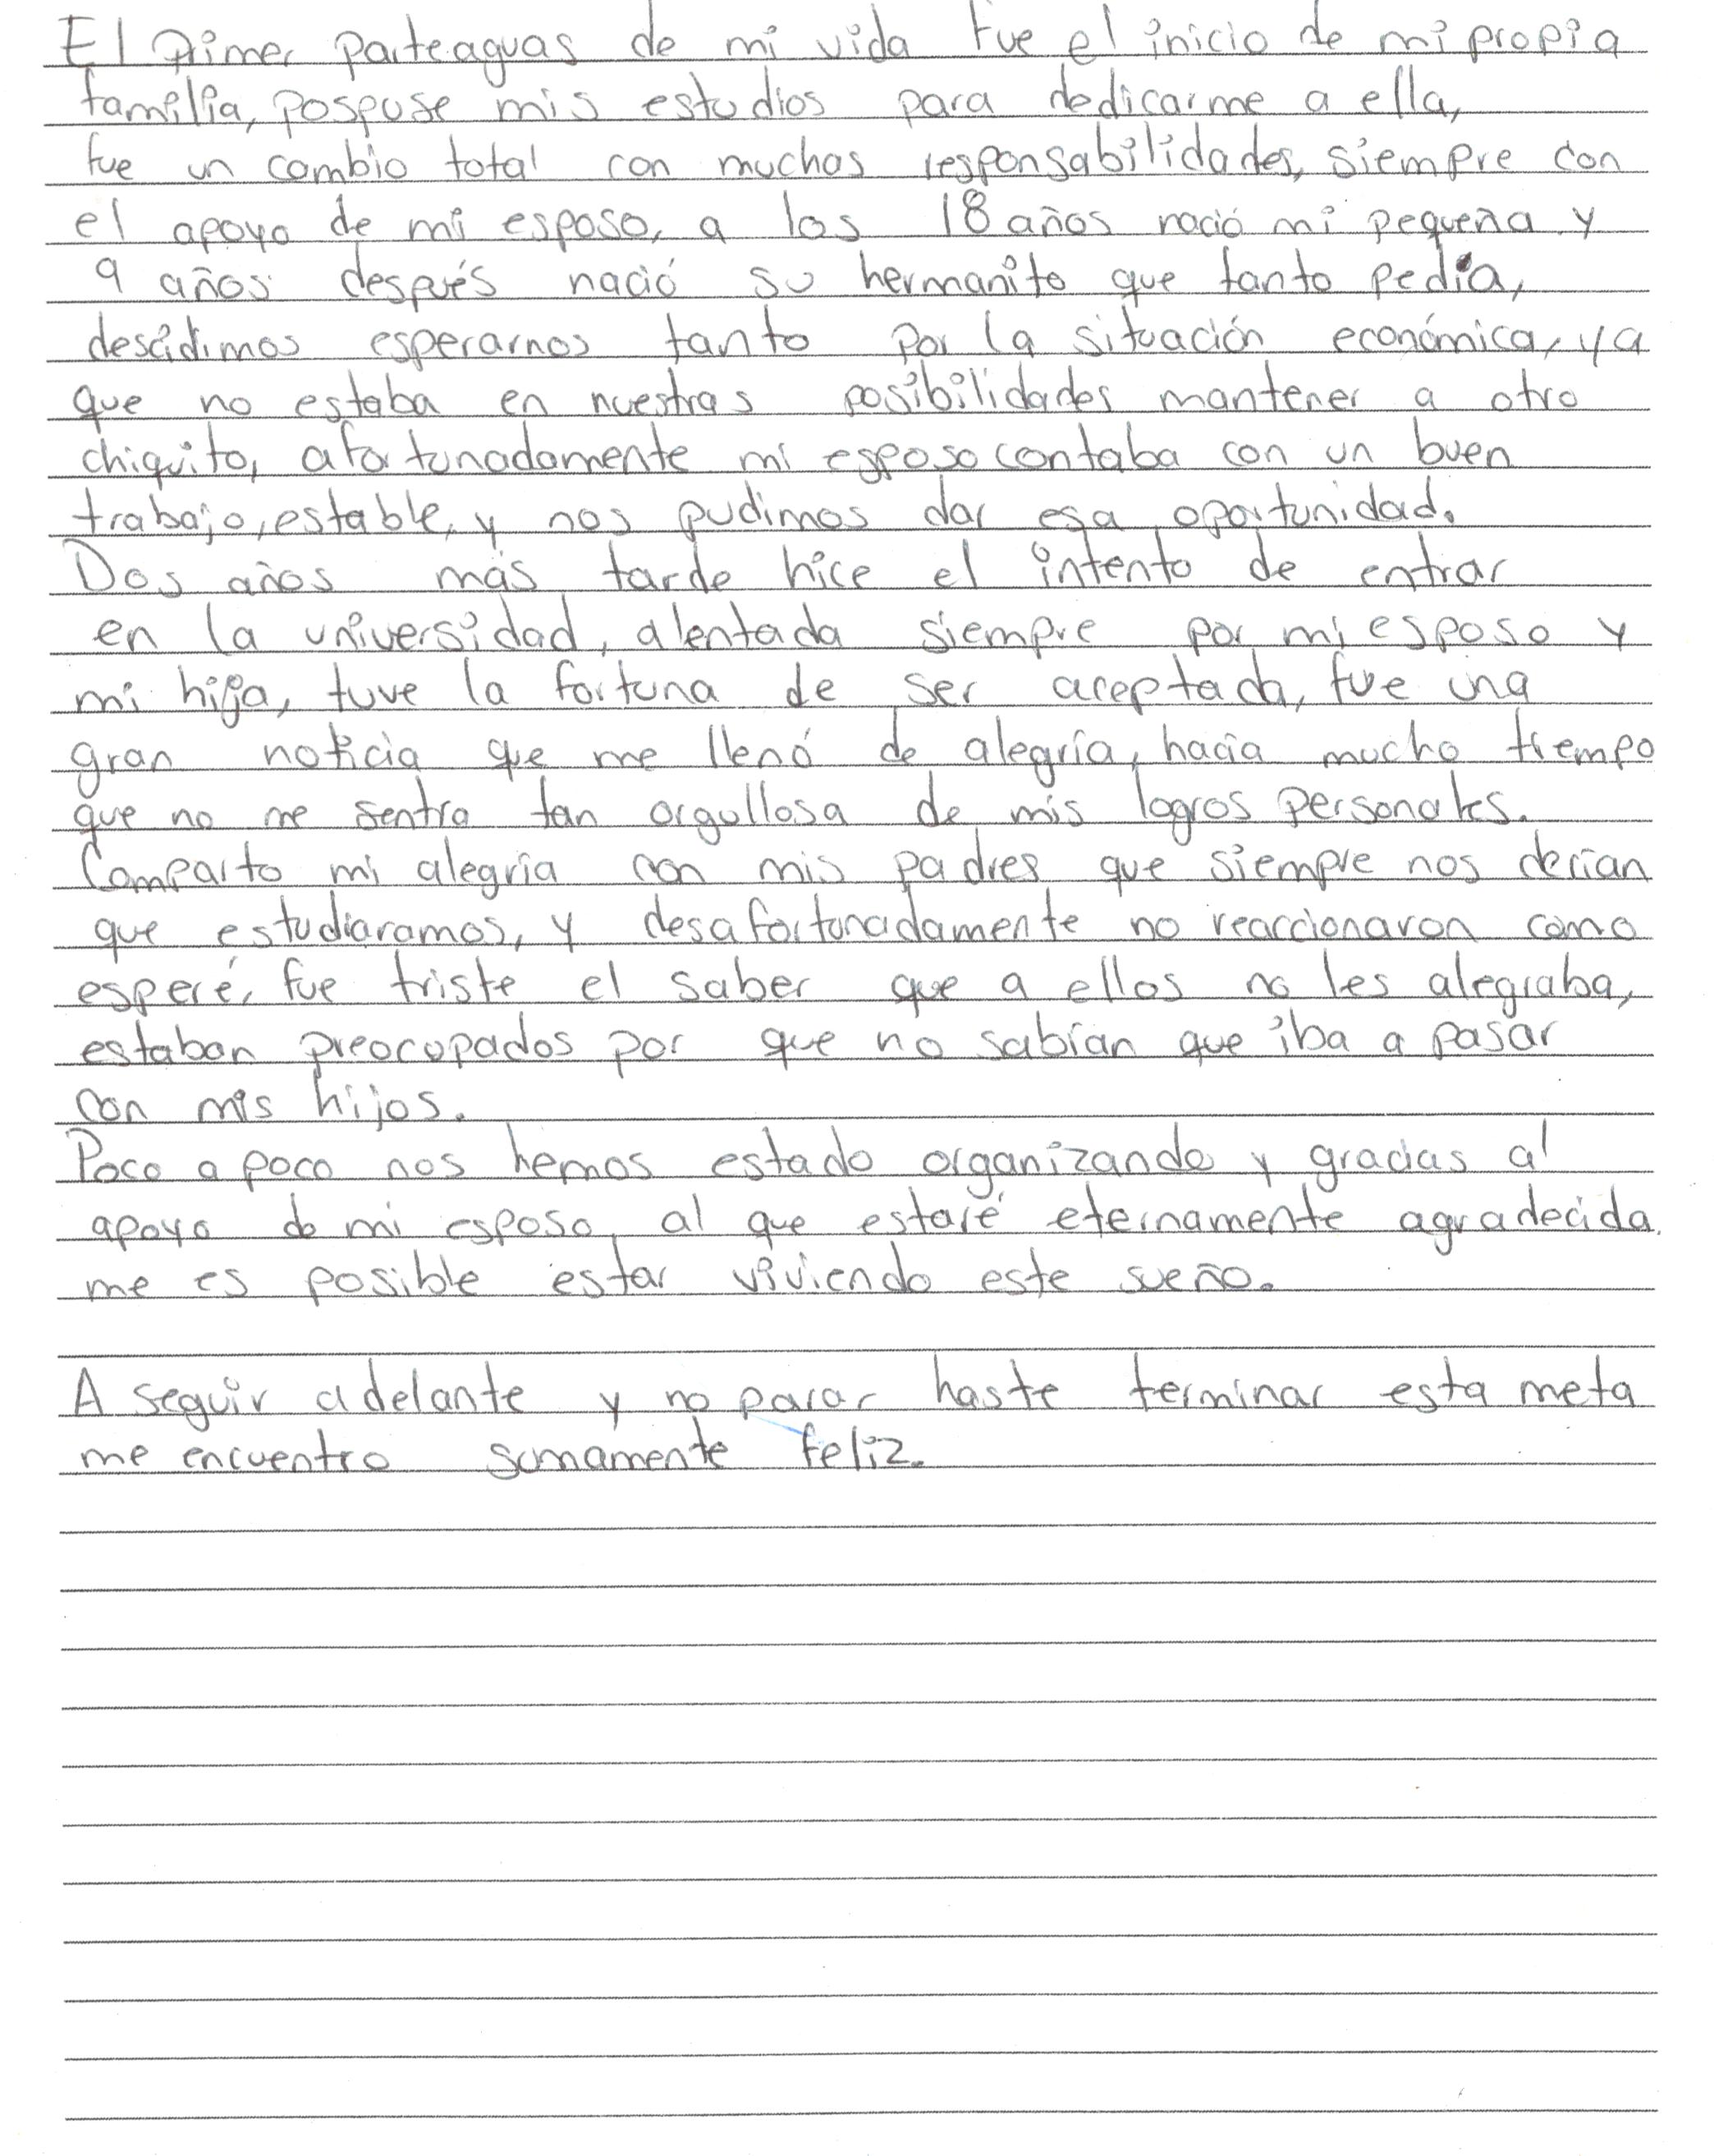 El primer parteaguas de mi vida fue el inicio de mi propia
familia, pospuse mis estudios para dedicarme a ella,
fue un cambio total con muchas responsabilidades, siempre con
el apoyo de mi esposo, a los 18 años nació mi pequeña y
9 años después nació su hermanito que tanto pedía,
descidimos esperarnos tanto por la situación económica, ya
que no estaba en nuestras posibilidades mantener a otro
chiquito, afortunadamente mi esposo contaba con un buen
trabajo, estable, y nos pudimos dar esa oportunidad.
Dos años más tarde hice el intento de entrar
en la universidad, alentada siempre por mi esposo y
mi hija, tuve la fortuna de ser aceptada, fue una
gran noticia que me llenó de alegría, hacía mucho tiempo
que no me sentía tan orgullosa de mis logros personales.
Comparto mi alegría con mis padres que siempre nos decían
que estudiaramos, y desafortunadamente no reaccionaron como
esperé, fue triste el saber que a ellos no les alegraba,
estaban preocupados por que no sabían que iba a pasar
con mis hijos.
Poco a poco nos hemos estado organizando y gracias al
apoyo de mi esposo, al que estaré eternamente agradecida,
me es posible estar viviendo este sueño.
A seguir adelante y no parar haste terminar esta meta
me encuentro sumamente feliz.